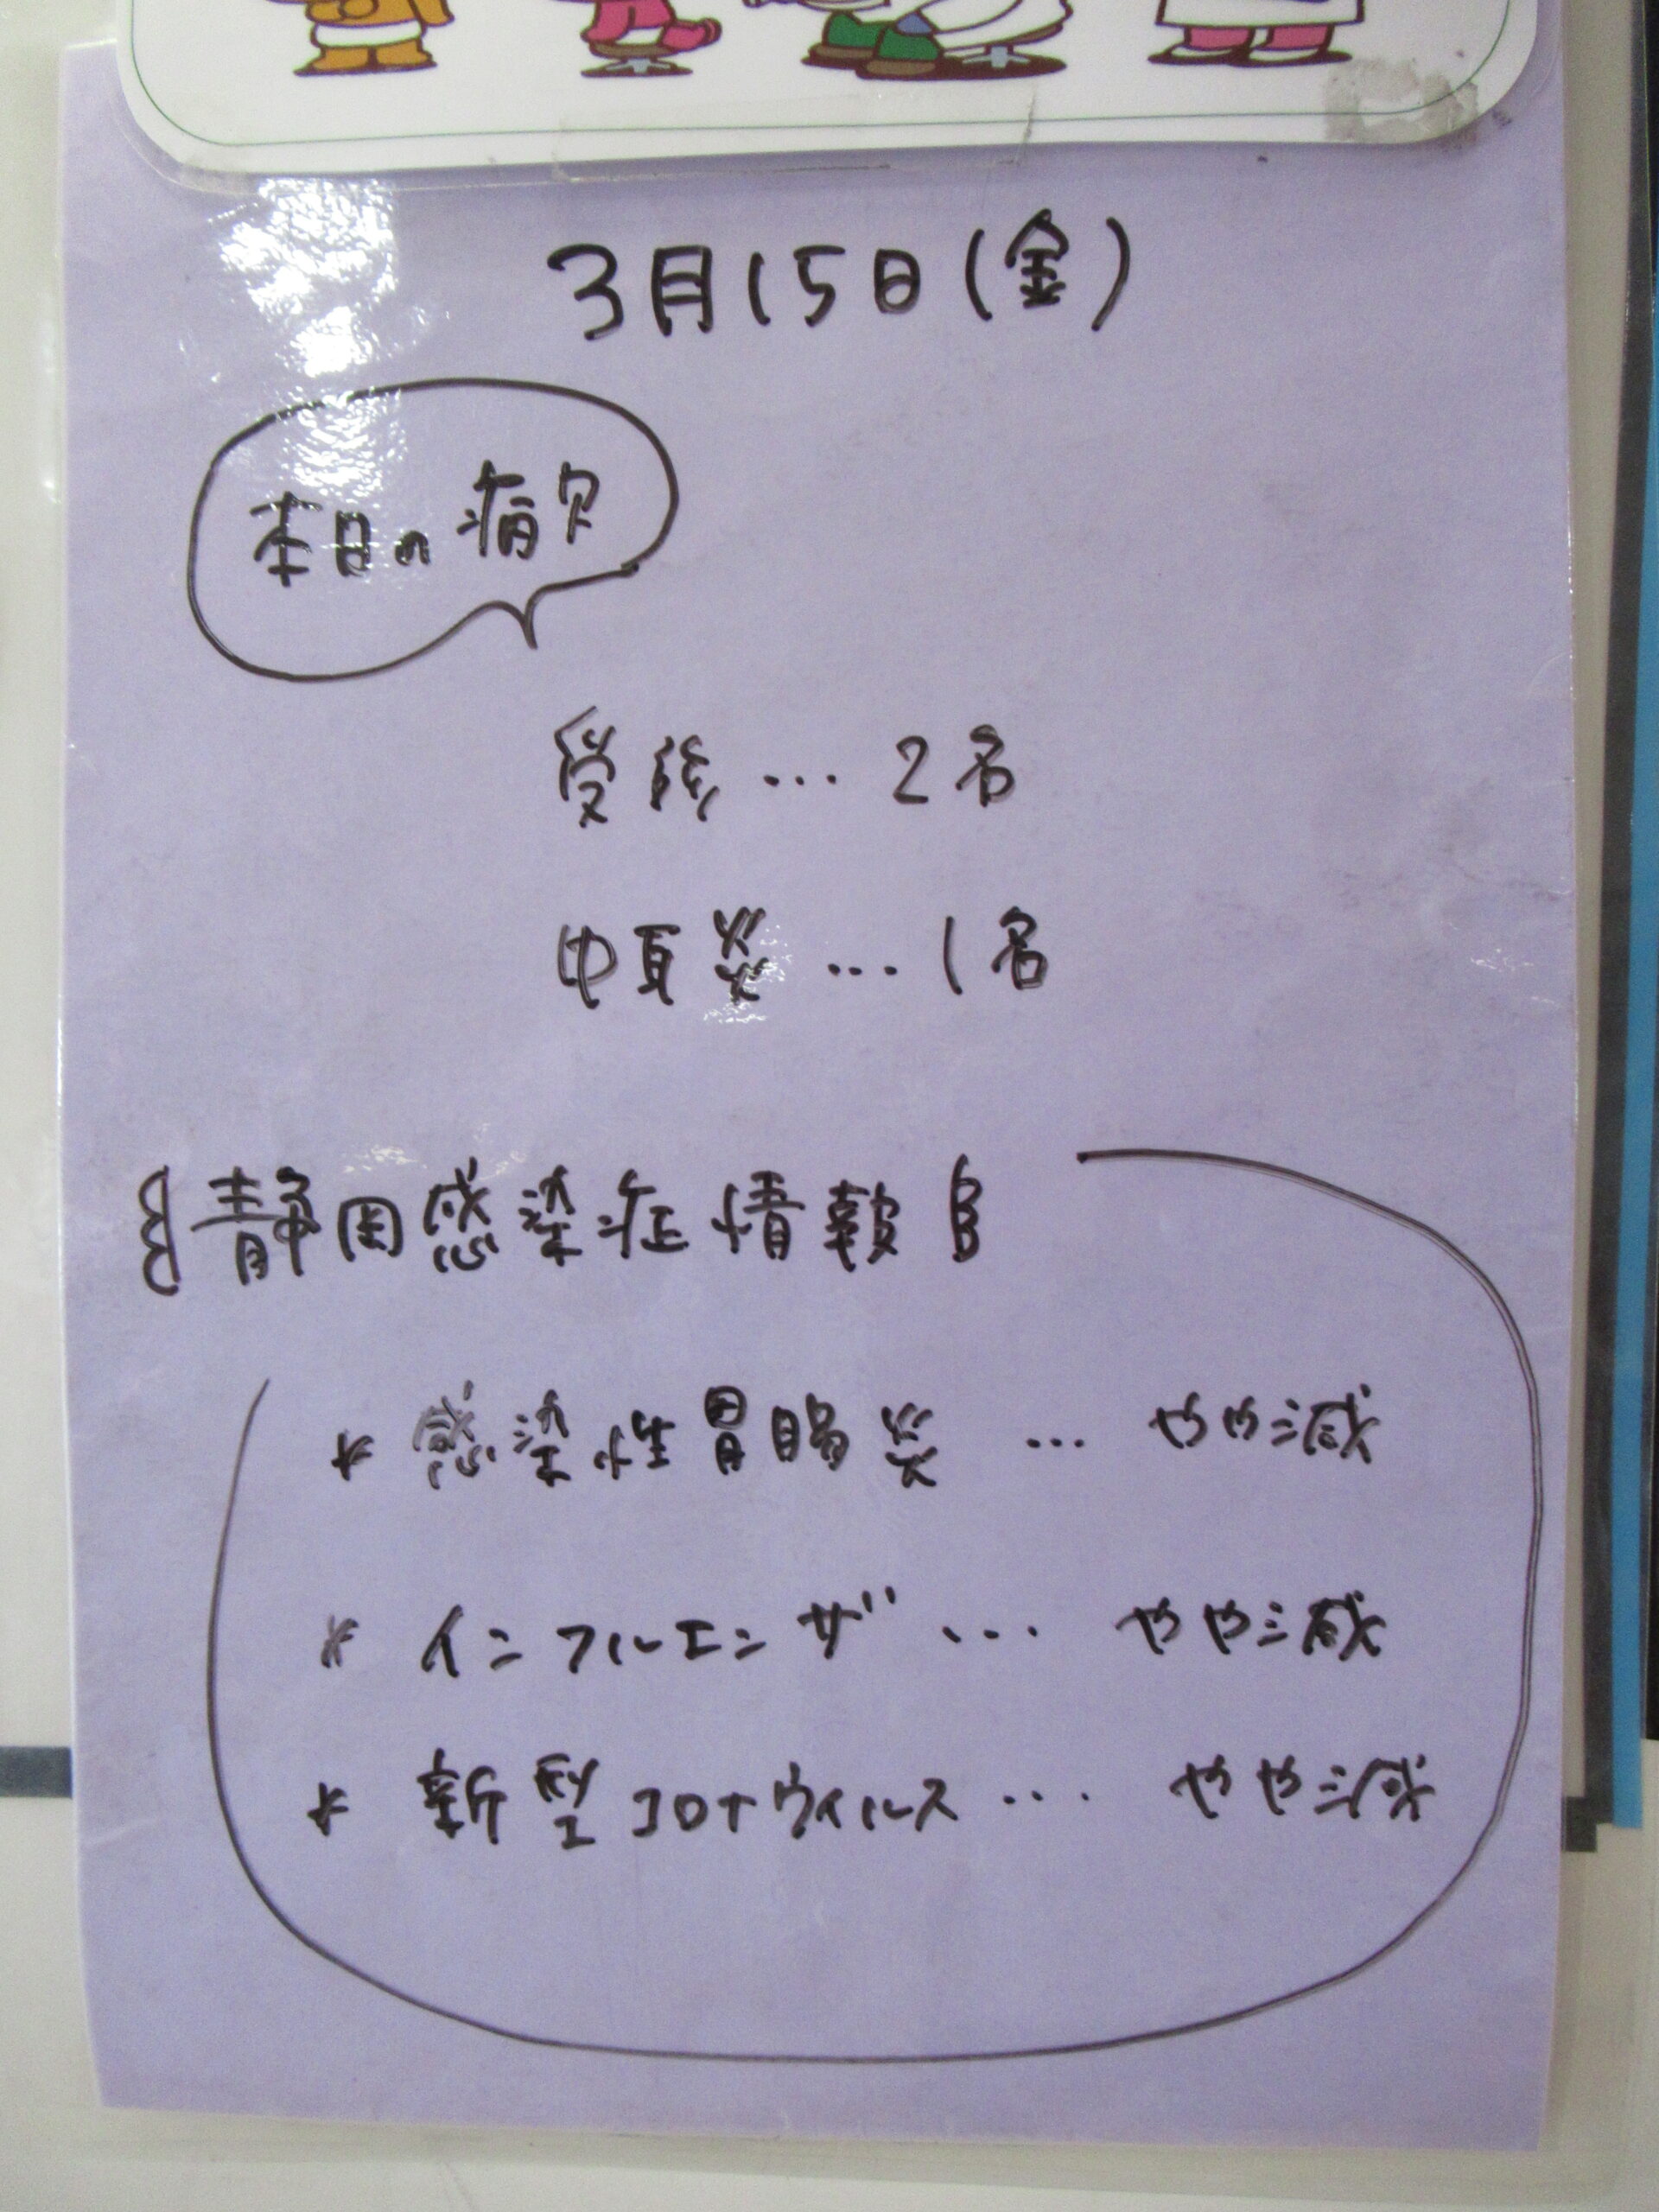 3月15日(金)
本日の病欠
受後…2名
中耳炎…1名
静岡感染症情報
* 感染性胃腸炎 … やや減
* インフルエンザ … やや減
* 新型コロナウィルス … やや減